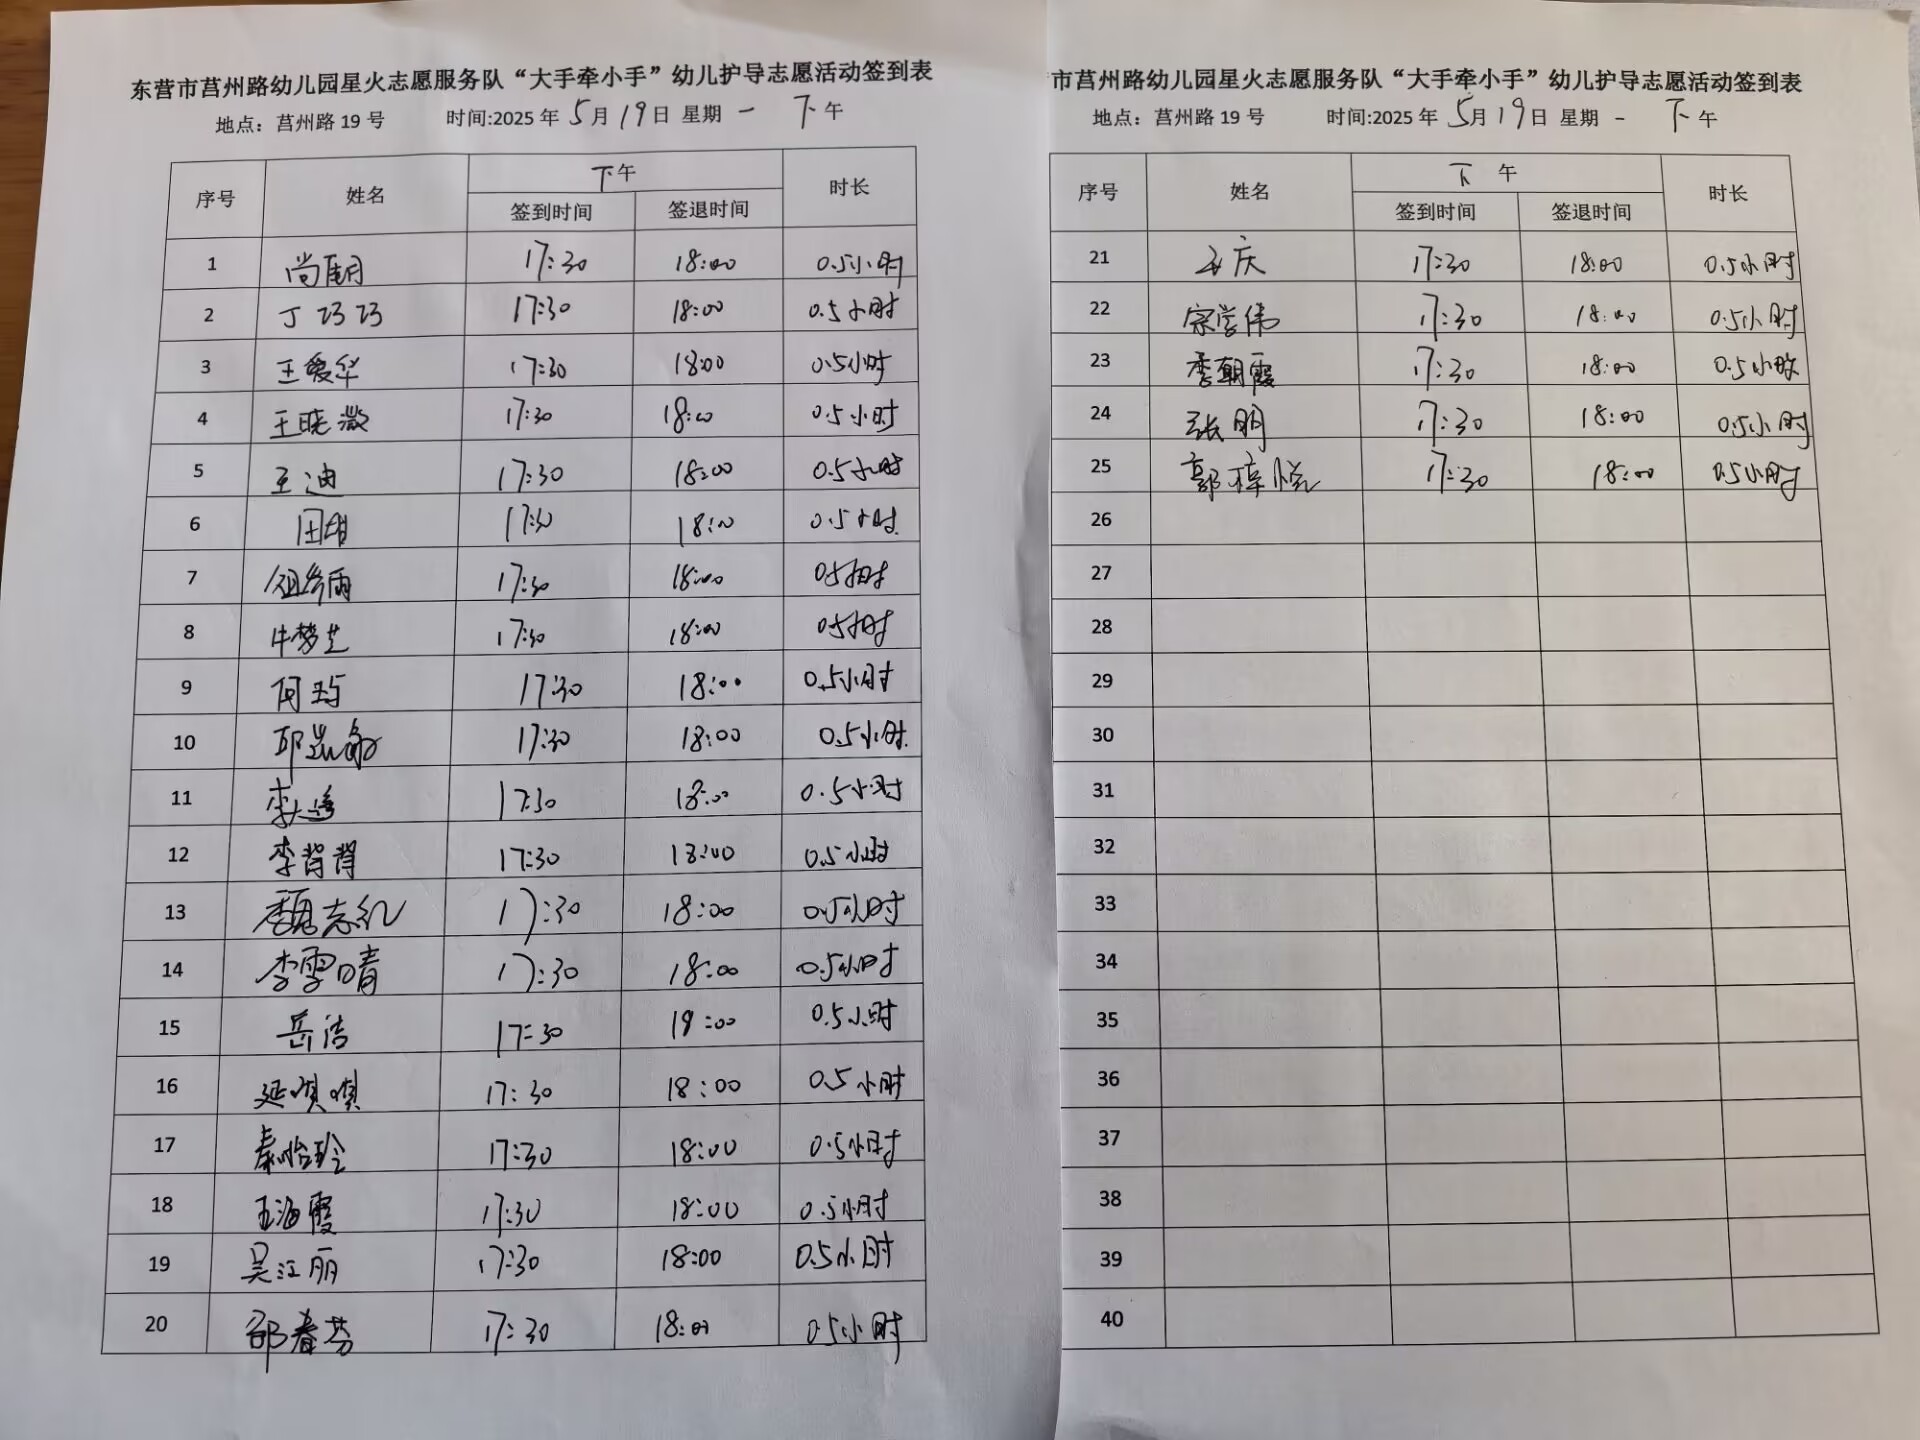 东营市莒州路幼儿园星火志愿服务队“大手牵小手”幼儿护导志愿活动签到表
地点：莒州路 19 号 时间:2025 年 5月19日 星期 一 下午
序号 姓名 下午 时长
签到时间 签退时间
1 17:30 18:00 0.5小时
2 丁巧巧 17:30 18:00 0.5小时
3 王爱华 17:30 18:00 0.5小时
4 王晓薇 17:30 18:00 0.5小时
5 王迪 17:30 18:00 0.5小时
6 17:30 18:00 0.5小时
7 17:30 18:00 0.5小时
8 牛梦芝 17:30 18:00 0.5小时
9 何 17:30 18:00 0.5小时
10 邱 17:30 18:00 0.5小时
11 李 17:30 18:00 0.5小时
12 李背背 17:30 18:00 0.5小时
13 魏志红 17:30 18:00 0.5小时
14 李雪晴 17:30 18:00 0.5小时
15 岳洁 17:30 18:00 0.5小时
16 延 17:30 18:00 0.5小时
17 秦怡玲 17:30 18:00 0.5小时
18 王海霞 17:30 18:00 0.5小时
19 吴江丽 17:30 18:00 0.5小时
20 邵春芬 17:30 18:00 0.5小时
市莒州路幼儿园星火志愿服务队“大手牵小手”幼儿护导志愿活动签到表
地点：莒州路 19 号 时间:2025 年 5月19日 星期 一 下午
序号 姓名 下午 时长
签到时间 签退时间
21 庆 17:30 18:00 0.5小时
22 宗学伟 17:30 18:00 0.5小时
23 季朝霞 17:30 18:00 0.5小时
24 张明 17:30 18:00 0.5小时
25 郭梓悦 17:30 18:00 0.5小时
26
27
28
29
30
31
32
33
34
35
36
37
38
39
40